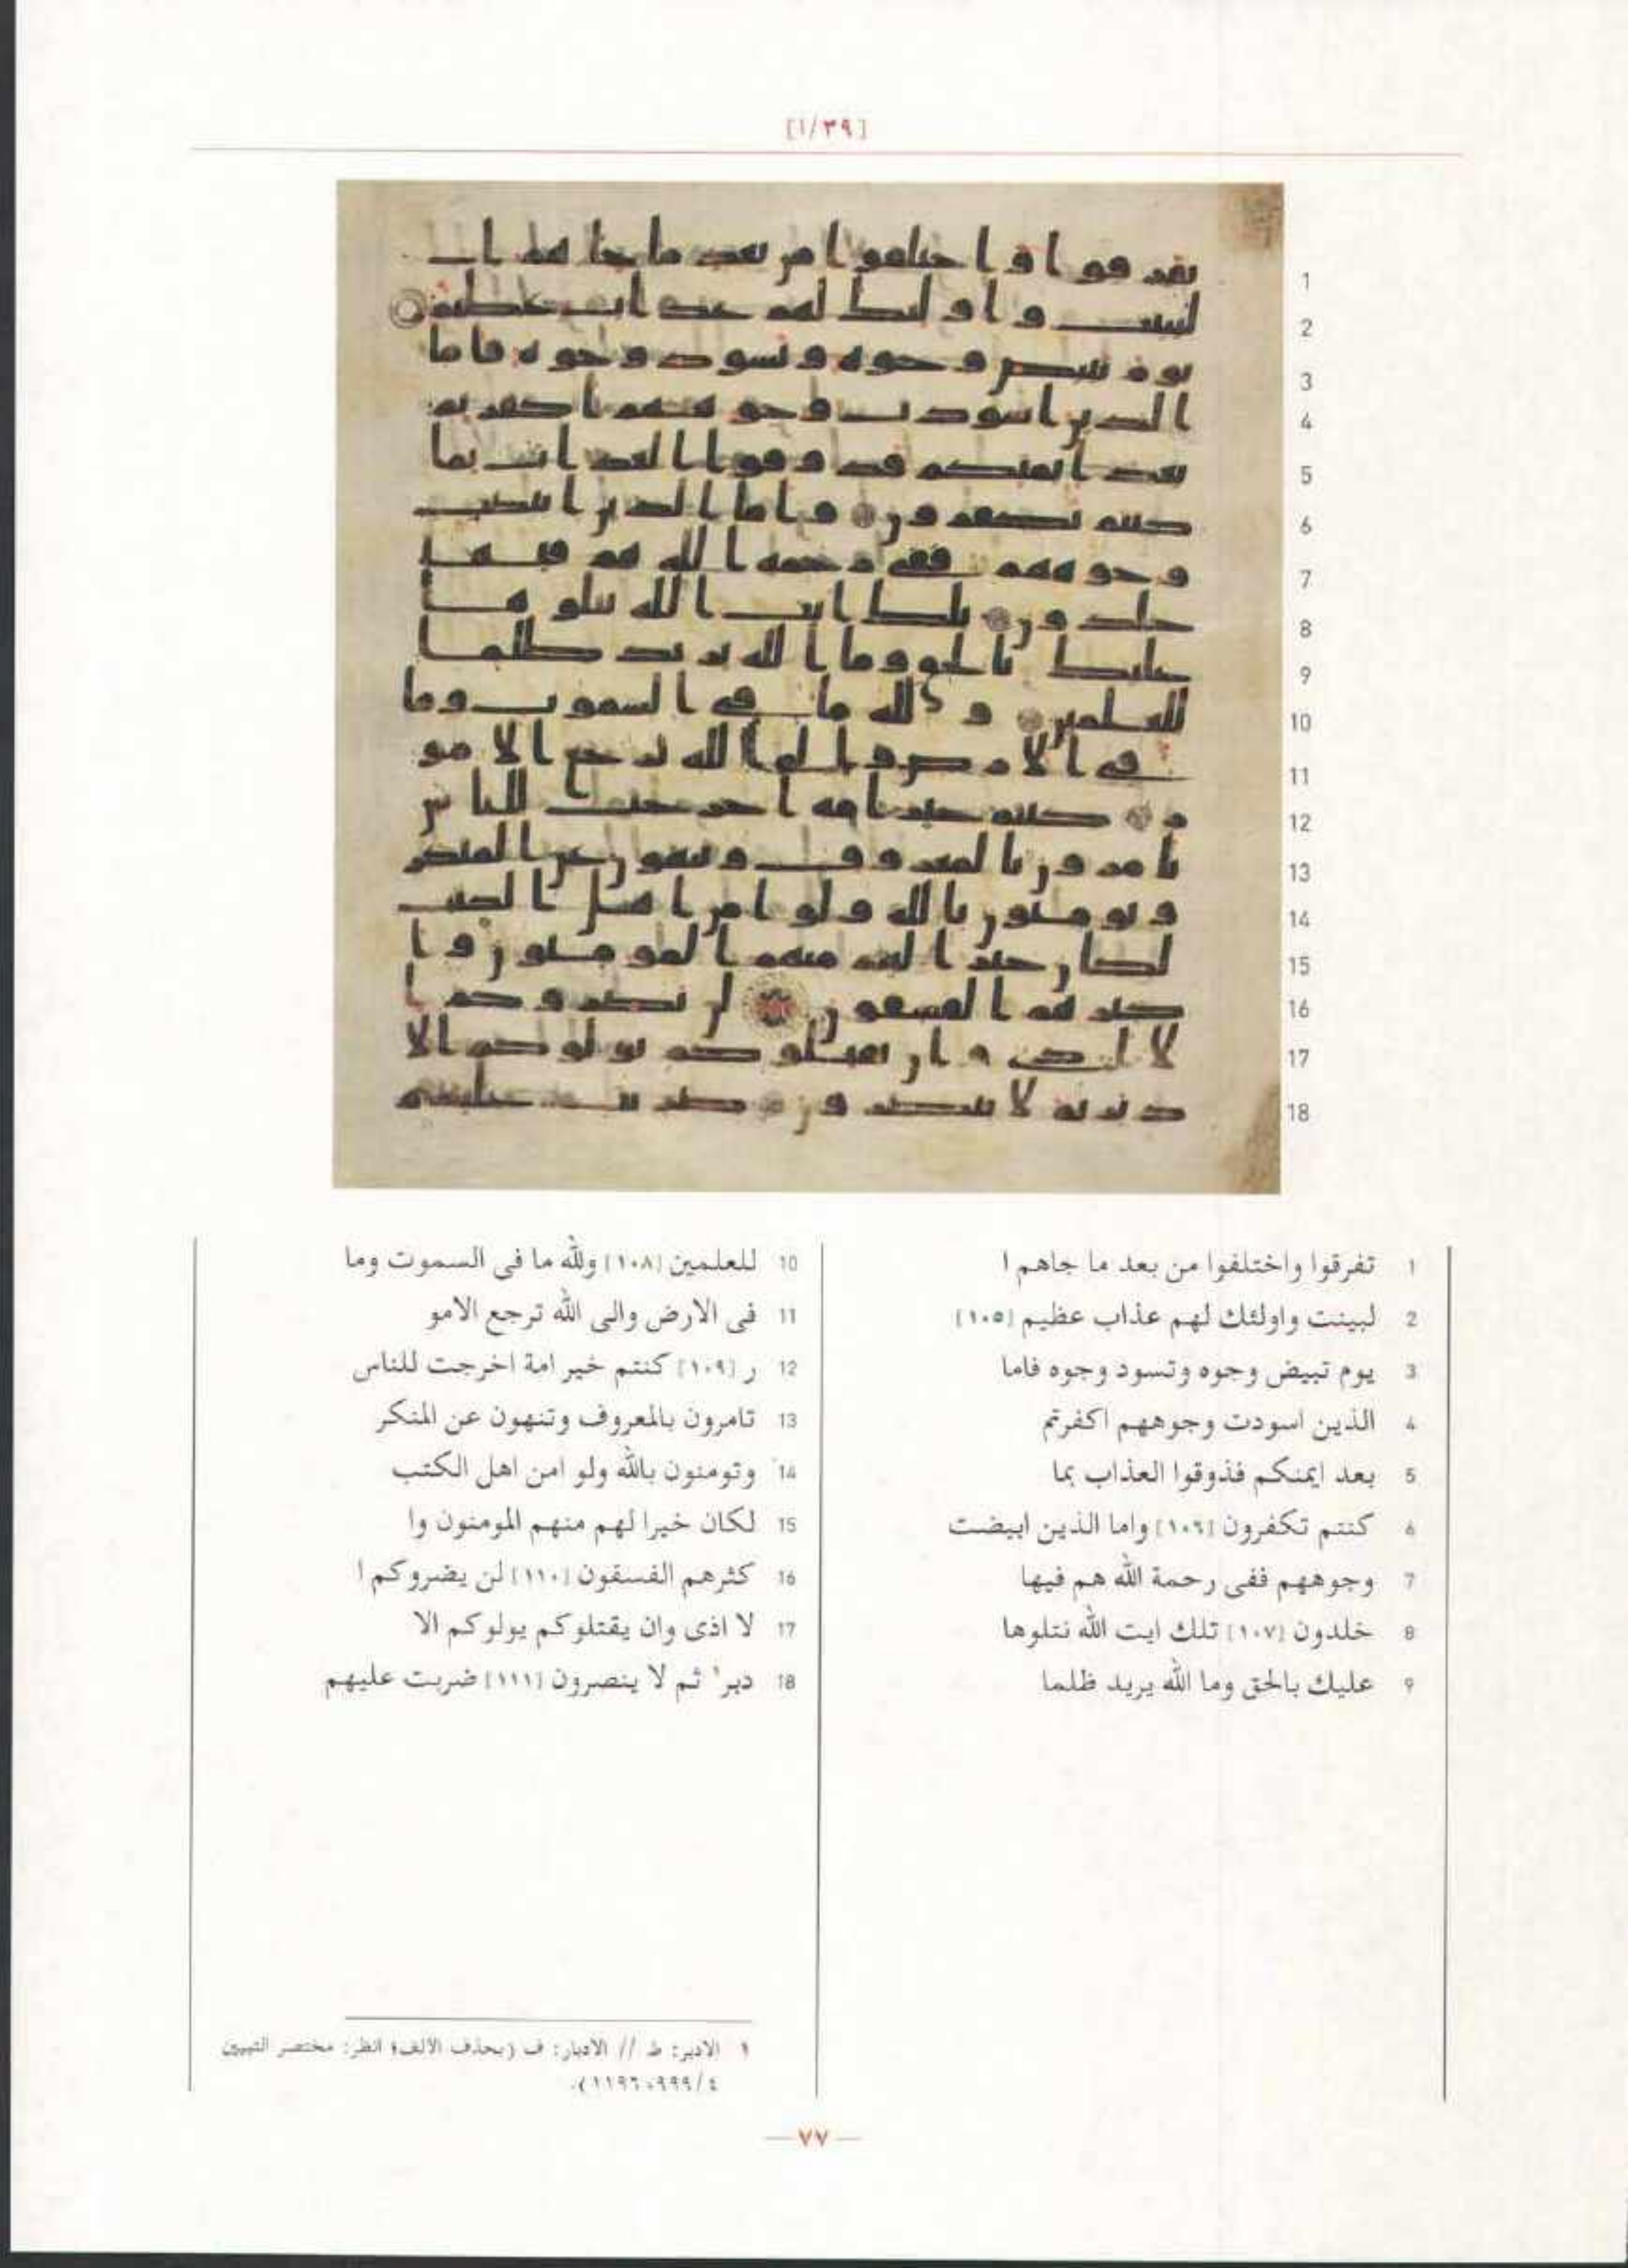 [١/٣٩]
1 تفرقوا واختلفوا من بعد ما جاهم ا
2 لبينت واولئك لهم عذاب عظيم [١٠٥]
3 يوم تبيض وجوه وتسود وجوه فاما
4 الذين اسودت وجوههم اكفرتم
5 بعد ايمنكم فذوقوا العذاب بما
6 كنتم تكفرون [١٠٦] واما الذين ابيضت
7 وجوههم ففى رحمة الله هم فيها
8 خلدون [١٠٧] تلك ايت الله نتلوها
9 عليك بالحق وما الله يريد ظلما
10 للعلمين [١٠٨] ولله ما فى السموت وما
11 فى الارض والى الله ترجع الامو
12 ر [١٠٩] كنتم خير امة اخرجت للناس
13 تامرون بالمعروف وتنهون عن المنكر
14 وتومنون بالله ولو امن اهل الكتب
15 لكان خيرا لهم منهم المومنون وا
16 كثرهم الفسقون [١١٠] لن يضروكم ا
17 لا اذى وان يقتلوكم يولوكم الا
18 دبر١ ثم لا ينصرون [١١١] ضربت عليهم
١ الادبر: ط // الادبار: ف (بحذف الالف؛ انظر: مختصر التبيين
٤/٩٩٩، ١١٩٦).
٧٧